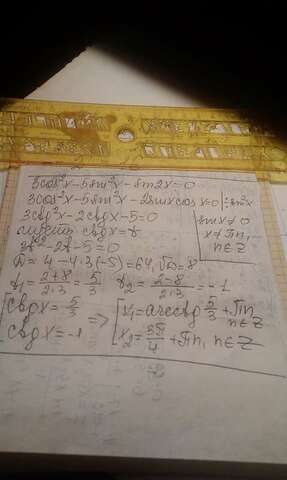 3cos²x-5sin²x-sin2x=0
3cos²x-5sin²x-2sinxcosx=0 |:sin²x
3ctg²x-2ctgx-5=0
sinx≠0
x≠πn,
n∈Z
пусть ctgx=t
3t²-2t-5=0
D=4-4·3(-5)=64, √D=8
t₁=(2+8)/(2·3)=5/3 t₂=(2-8)/(2·3)=-1
[ctgx=5/3 => [x₁=arcctg 5/3+πn, n∈Z
ctgx=-1 x₂=3π/4+πn, n∈Z